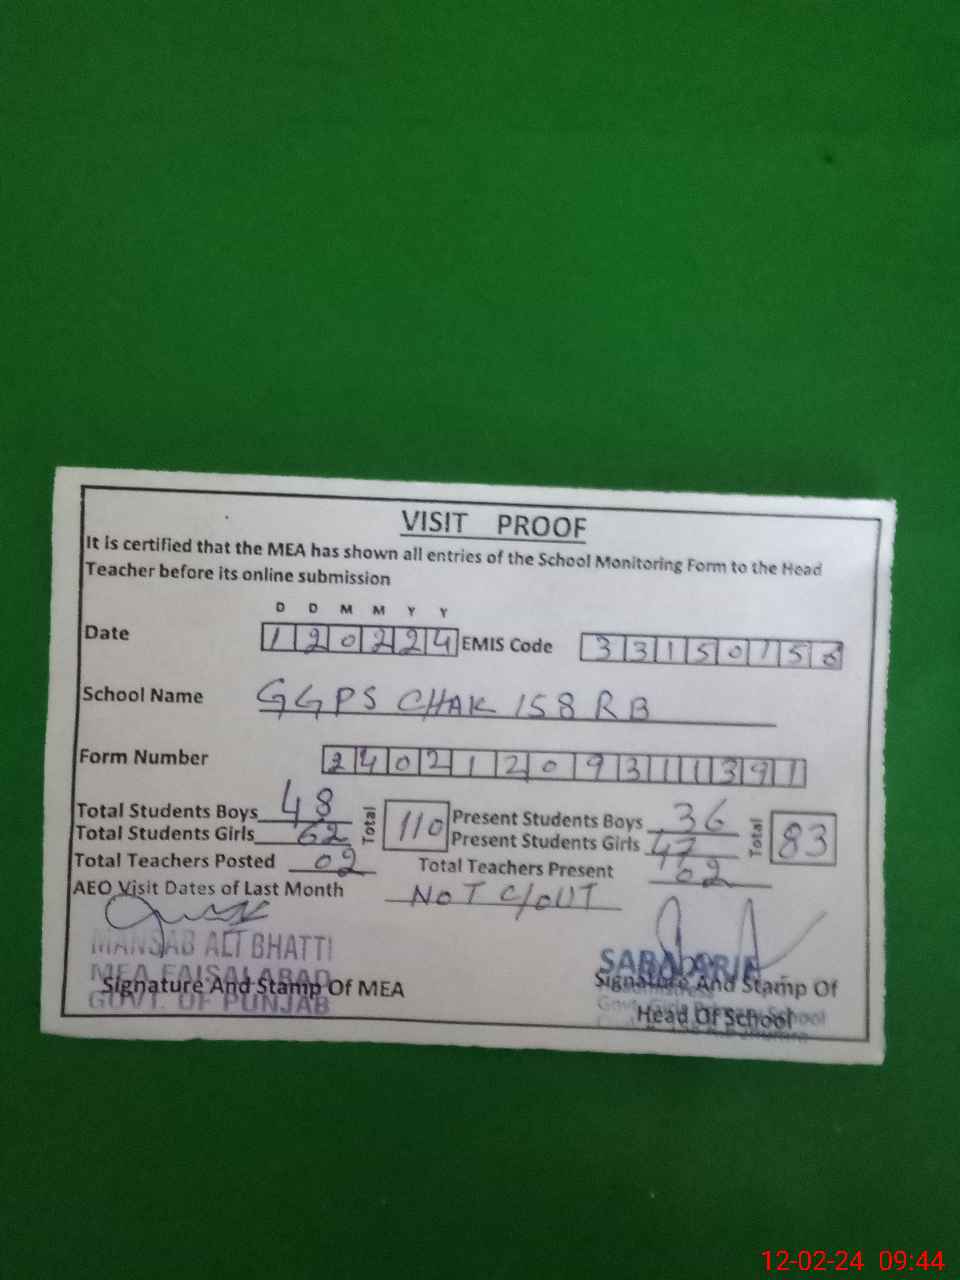 VISIT PROOF
It is certified that the MEA has shown all entries of the School Monitoring Form to the Head
Teacher before its online submission
D D M M Y Y
Date 120224 EMIS Code 33150156
School Name GGPS CHAK 158 RB
Form Number 240212093111391
Total Students Boys 48 Total 110 Present Students Boys 36 Total 83
Total Students Girls 62 Present Students Girls 47
Total Teachers Posted 02 Total Teachers Present 02
AEO Visit Dates of Last Month NOT C/OUT
MANSAB ALI BHATTI
MEA FAISALABAD
GOVT. OF PUNJAB
Signature And Stamp Of MEA
SABA ARIF
Signature And Stamp Of
Head Of School
12-02-24 09:44